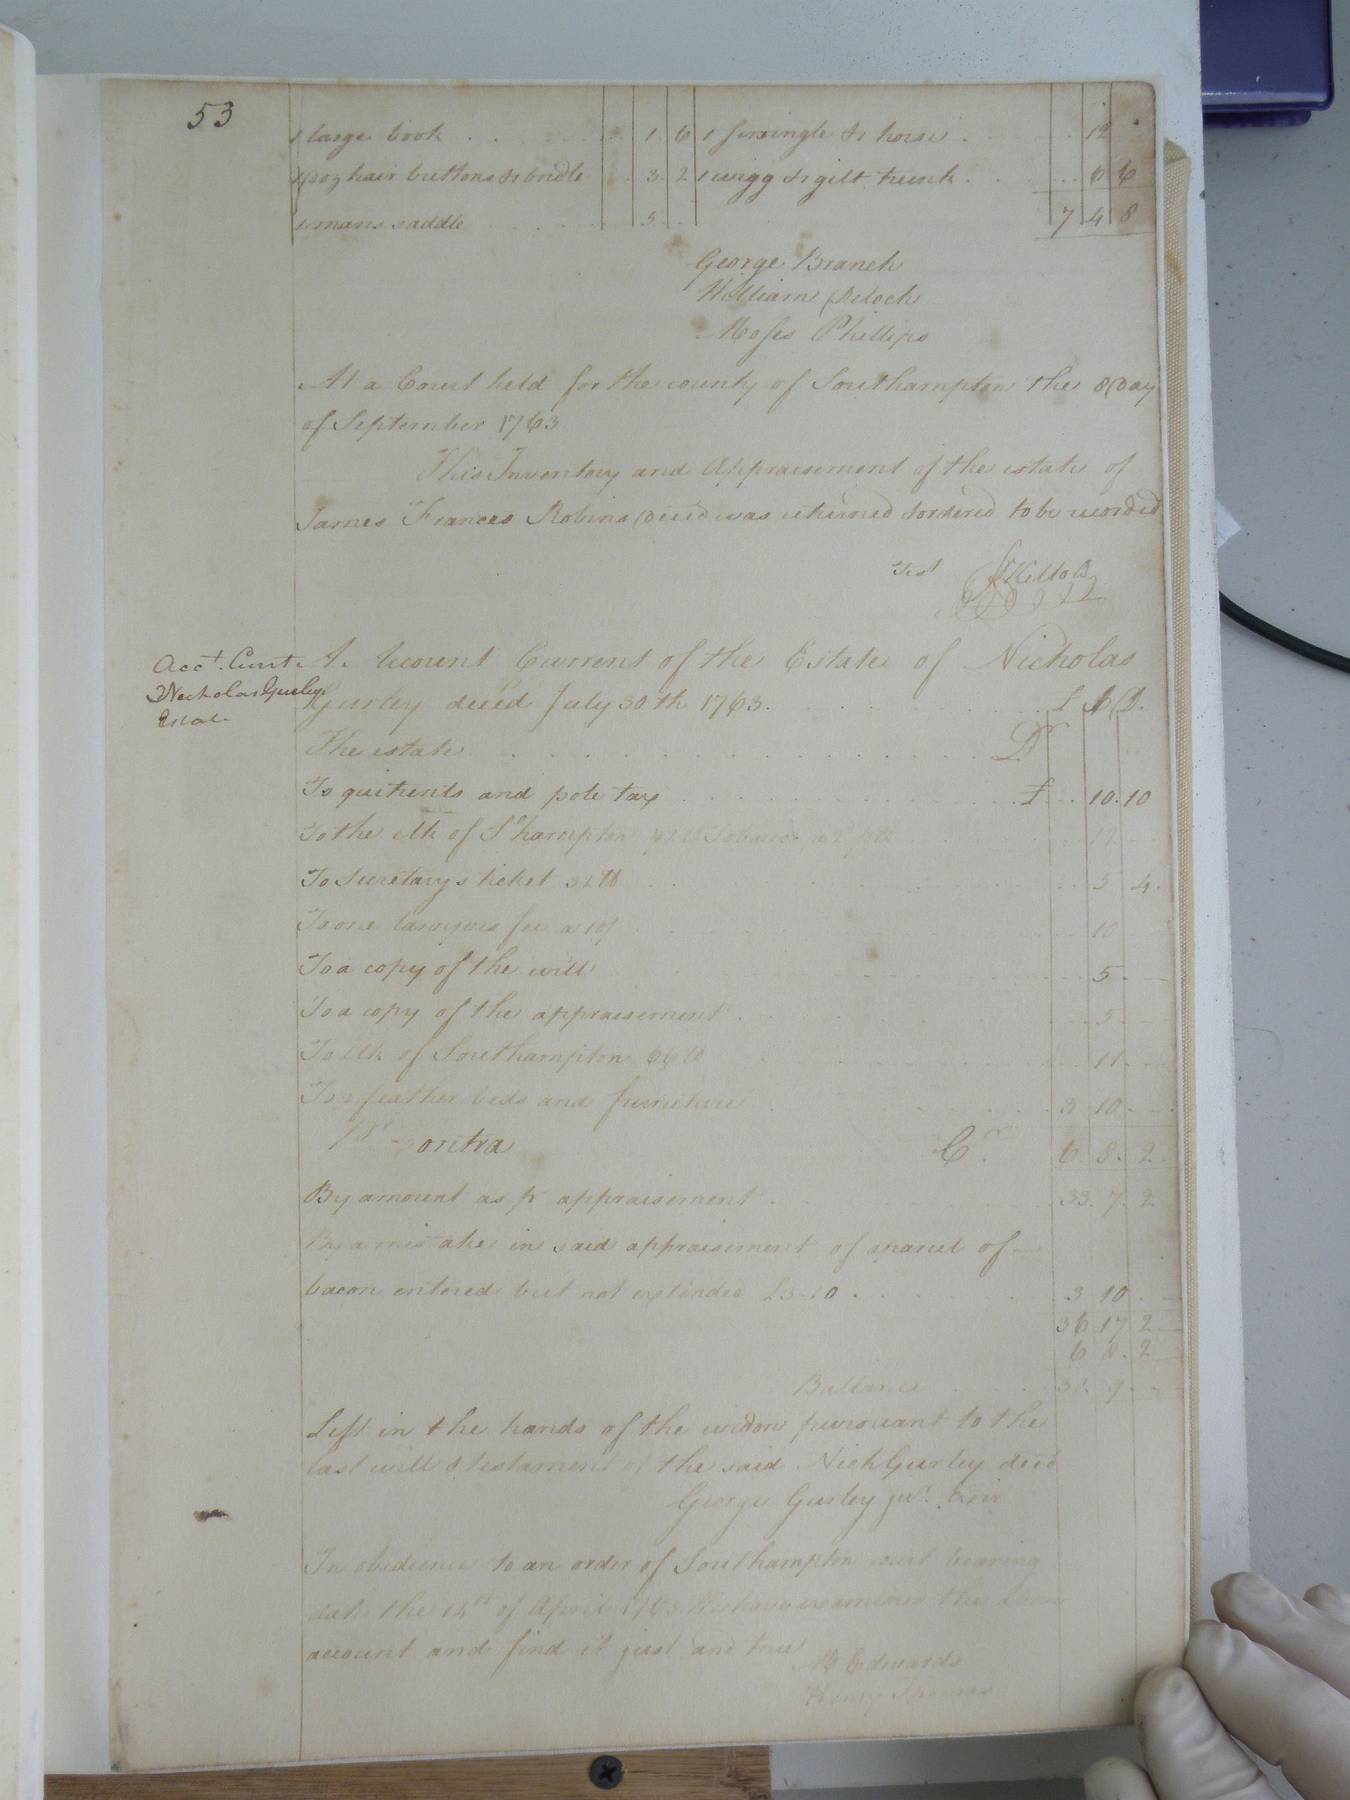 53
1 large book . . . . . . 1 6 1 sirsingle & horse . . . . 12
doz hair buttons & bridle . 3 2 1 wigg & gilt trunk . . . . 6 6
1 mans saddle . . . . 5 . 7 4 8
George Branch
William Deloch
Moses Phillips
At a Court held for the county of Southampton the 8 Day
of September 1763
This Inventory and Appraisement of the estate of
James Frances Robins Deced was returned & ordered to be recorded
Test
Acct. Curt.
Nicholas Gurley
Account Current of the Estate of Nicholas
Gurley deced July 30th 1763. . . . £ S D.
The estate . . . . Dr
To quitrents and pole tax . . . . £ . . 10. 10
To the Clk of So hampton Tobacco
To Secretarys ticket 32 lb . . . . 5 4.
To one lawyers fee a 10/ . . . . 10
To a copy of the will . . . . 5 . —
To a copy of the appraisement . . . . 5 . —
To Clk of Southampton 66 lb . . . . 11 . —
To 2 feather beds and furniture . . . . 3 10 . —
Pr Contra Cr 6. 8. 2
By amount as pr appraisement . . . . 33. 7. 2
By a mistake in said appraisement of a parcel of
bacon entered but not extended £3-10 . . . . 3 10 . —
36 17 2
6 8. 2
Ballance . . . . 30. 9 . —
Left in the hands of the widow pursuant to the
last will & testament of the said Nich Gurley deced
George Gurley junr. Exir
In obedience to an order of Southampton court bearing
date the 14th of April 1763 We have examined the above
account and find it just and true
Edwards
Henry